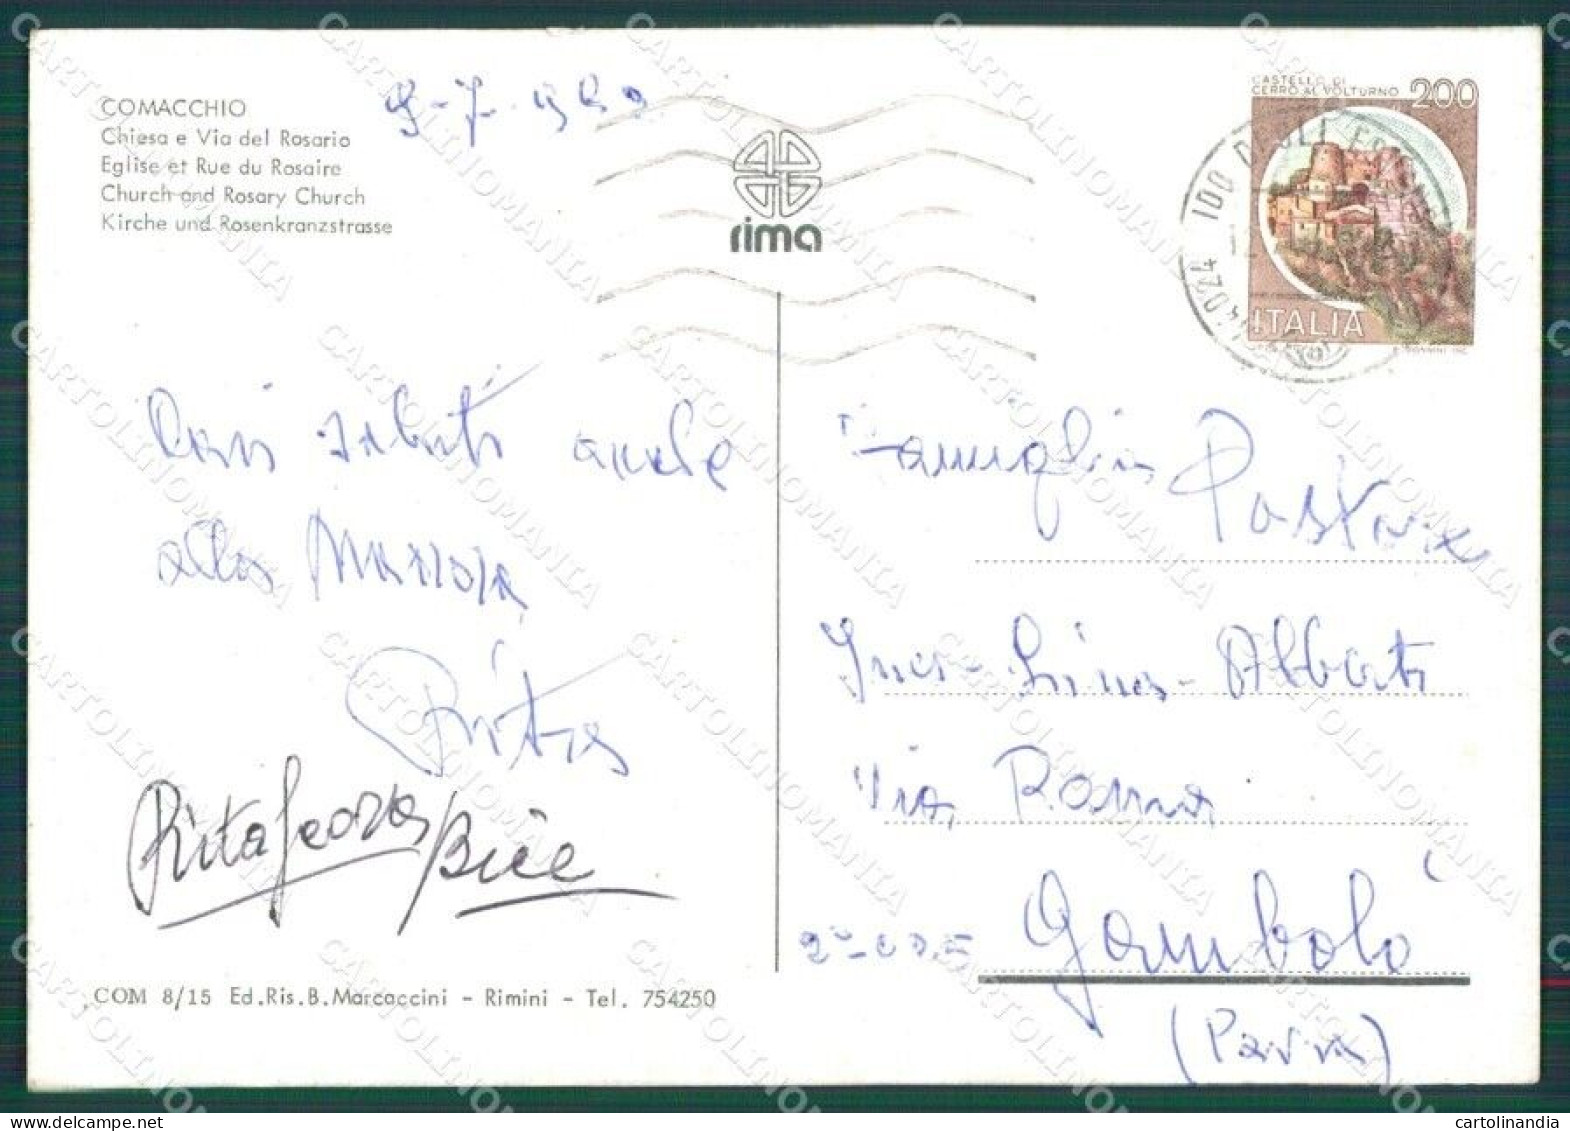 COMACCHIO
Chiesa e Via del Rosario
Eglise et Rue du Rosaire
Church and Rosary Church
Kirche und Rosenkranzstrasse
rima
CASTELLO DI
CERRO AL VOLTURNO 200
ITALIA
44024
Cari saluti anche
alla
Rita
Rita Bice
COM 8/15 Ed.Ris.B.Marcaccini - Rimini - Tel. 754250
Famiglia
Lina - Alberti
Via Roma
Gambolò
(Pavia)
CARTOLINOMANIA
cartolinandia